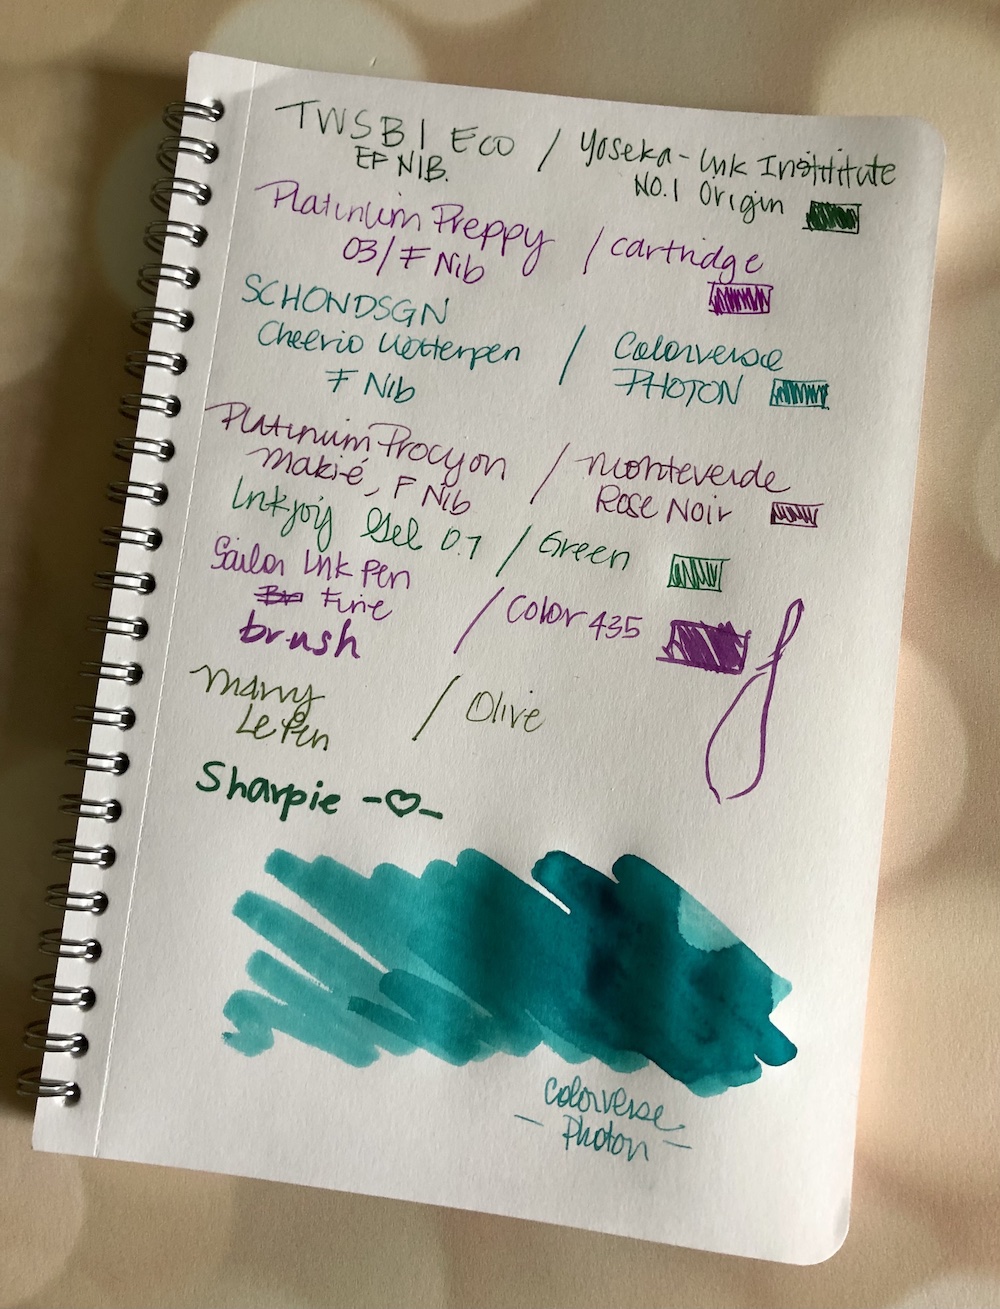 TWSBI Eco / Yoseka - Ink Instititute
EF NIB. No.1 Origin
Platinium Preppy / cartridge
03/F Nib
SCHONDSGN
Cheerio Rotterpen / Colorverse
F Nib PHOTON
Platinum Procyon / monteverde
makié, F Nib Rose Noir
Inkjoy Gel 0.7 / Green
Sailor Ink Pen
Fine / Color 435
brush
marvy / Olive
Le Pen
Sharpie -♡-
Colorverse
- Photon -